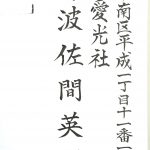 南区平成一丁目十一番一
愛光社
波佐間英